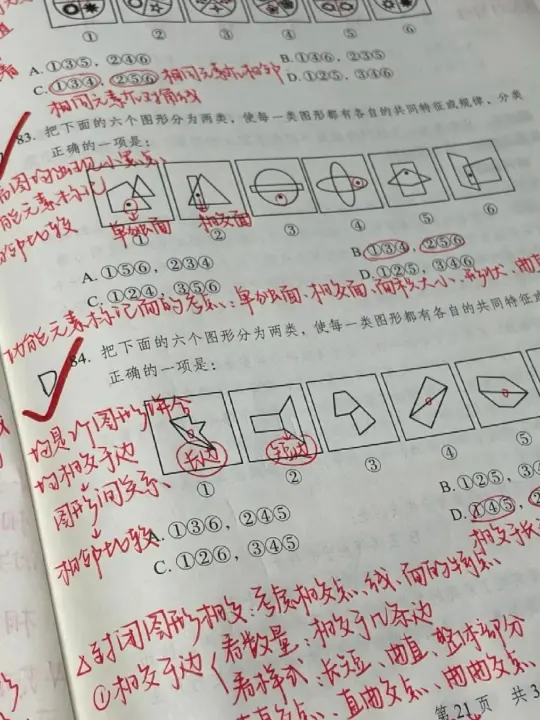 ① ② ③ ④ ⑤ ⑥
A. ①③⑤，②④⑥
B. ①④⑥，②③⑤
C. ①③④，②⑤⑥ 相同元素标相邻
D. ①②⑤，③④⑥
相同元素标对角线
83. 把下面的六个图形分为两类，使每一类图形都有各自的共同特征或规律，分类
正确的一项是：
单独面 相交面
① ② ③ ④ ⑤ ⑥
A. ①⑤⑥，②③④
B. ①③④，②⑤⑥
C. ①②④，③⑤⑥
D. ①②⑤，③④⑥
功能元素标记面的考点：单独面、相交面、面积大小、形状、曲直
84. 把下面的六个图形分为两类，使每一类图形都有各自的共同特征或
正确的一项是：
D
均是2个图形拼合
均相交于边
图形间关系
相邻比较
长边 短边
① ② ③ ④ ⑤
A. ①③⑥，②④⑤
B. ①②⑤，③④
C. ①②⑥，③④⑤
D. ①④⑤，②
相交于长
△封闭图形相交：考虑相交点、线、面的特点
①相交于边
看数量：相交于几条边
看样式：长短、曲直、整体部分
直曲交点、曲曲交点
第 21 页 共 3